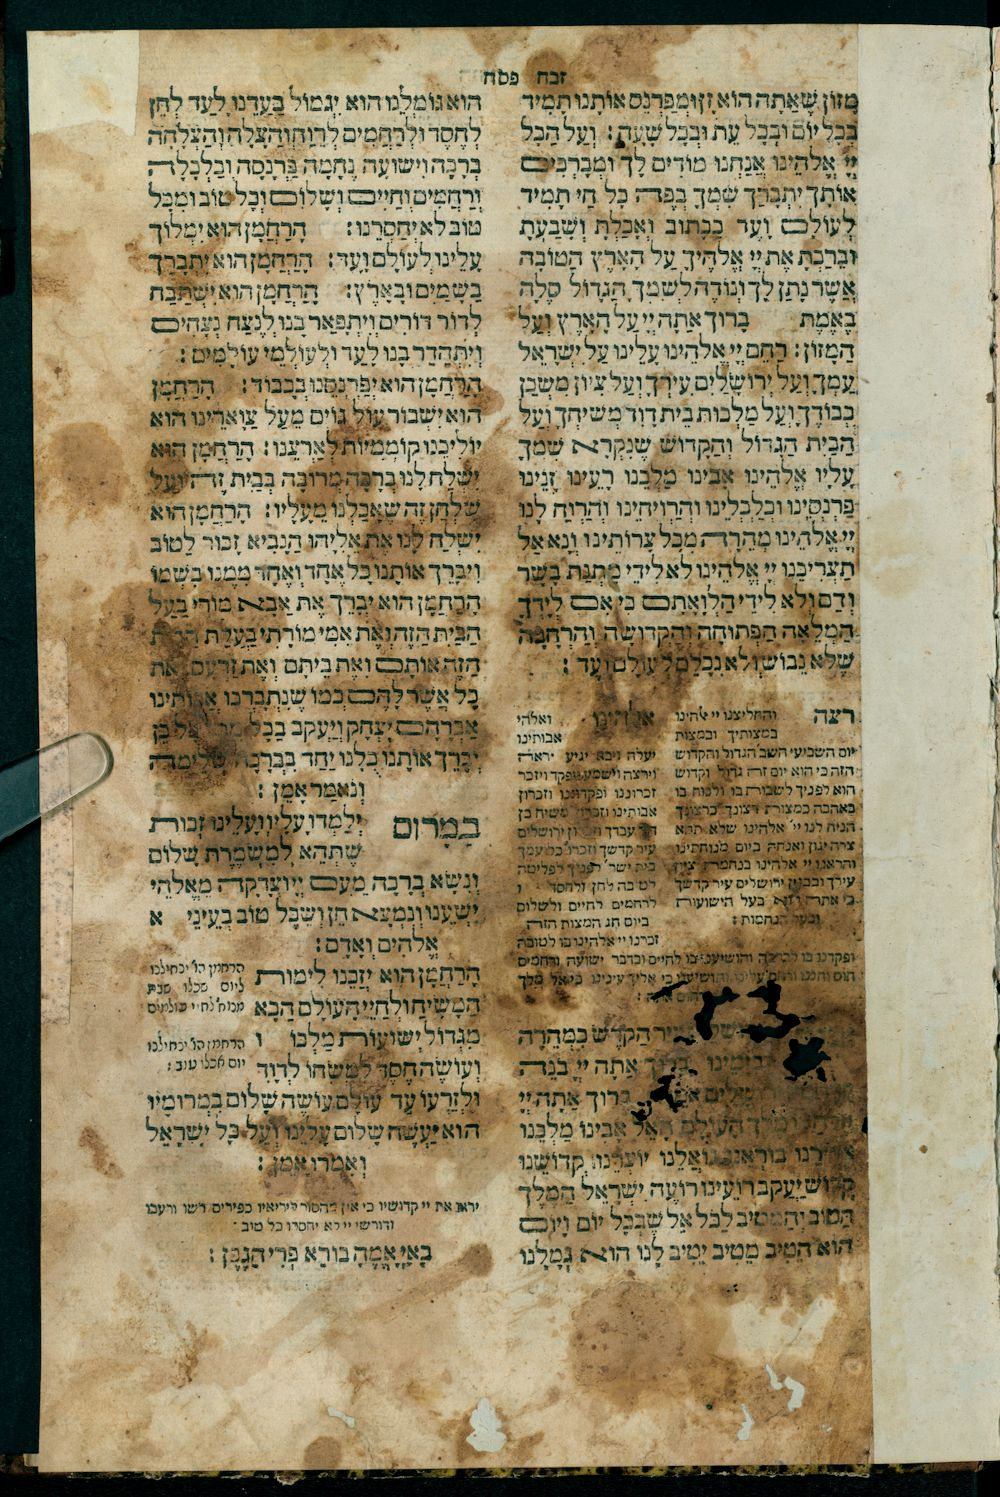 זבח פסח
מָזוֹן שָׁאַתָּה הוּא זָן וּמְפַרְנֵס אוֹתָנוּ תָּמִיד
בְּכָל יוֹם וּבְכָל עֵת וּבְכָל שָׁעָה׃ וְעַל הַכֹּל
יְיָ אֱלֹהֵינוּ אֲנַחְנוּ מוֹדִים לָךְ וּמְבָרְכִים
אוֹתָךְ יִתְבָּרַךְ שִׁמְךָ בְּפֶה כָּל חַי תָּמִיד
לְעוֹלָם וָעֶד כַּכָּתוּב וְאָכַלְתָּ וְשָׂבַעְתָּ
וּבֵרַכְתָּ אֶת יְיָ אֱלֹהֶיךָ עַל הָאָרֶץ הַטּוֹבָה
אֲשֶׁר נָתַן לָךְ וְנוֹדֶה לְשִׁמְךָ הַגָּדוֹל סֶלָה
בֶּאֱמֶת בָּרוּךְ אַתָּה יְיָ עַל הָאָרֶץ וְעַל
הַמָּזוֹן׃ רַחֵם יְיָ אֱלֹהֵינוּ עָלֵינוּ עַל יִשְׂרָאֵל
עַמְּךָ וְעַל יְרוּשָׁלַיִם עִירְךָ וְעַל צִיּוֹן מִשְׁכַּן
כְּבוֹדֶךָ וְעַל מַלְכוּת בֵּית דָּוִד מְשִׁיחֶךָ וְעַל
הַבַּיִת הַגָּדוֹל וְהַקָּדוֹשׁ שֶׁנִּקְרָא שִׁמְךָ
עָלָיו אֱלֹהֵינוּ אָבִינוּ מַלְכֵּנוּ רָעֵינוּ זָנֵינוּ
פַּרְנְסֵינוּ וְכַלְכְּלֵינוּ וְהַרְוִיחֵינוּ וְהַרְוַח לָנוּ
יְיָ אֱלֹהֵינוּ מְהֵרָה מִכָּל צָרוֹתֵינוּ וְנָא אַל
תַּצְרִיכֵנוּ יְיָ אֱלֹהֵינוּ לֹא לִידֵי מַתְּנַת בָּשָׂר
וָדָם וְלֹא לִידֵי הַלְוָאָתָם כִּי אִם לְיָדְךָ
הַמְּלֵאָה הַפְּתוּחָה וְהַקְּדוֹשָׁה וְהָרְחָבָה
שֶׁלֹּא נֵבוֹשׁ וְלֹא נִכָּלֵם לְעוֹלָם וָעֶד׃
רצה והחליצנו יי אלהינו
במצותיך ובמצות
יום השביעי השבת הגדול והקדוש
הזה כי הוא יום זה גדול וקדוש
הוא לפניך לשבות בו ולנוח בו
באהבה כמצות רצונך ברצונך
הניח לנו יי אלהינו שלא תהא
צרה יגון ואנחה ביום מנוחתינו
והראנו יי אלהינו בנחמת ציון
עירך ובבנין ירושלים עיר קדשך
כי אתה הוא בעל הישועות
ובעל הנחמות׃
אלהינו ואלהי
אבותינו
יעלה ויבא יגיע יראה
וירצה וישמע יפקד ויזכר
זכרוננו ופקדוננו וזכרון
אבותינו וזכרון משיח בן
דוד עבדך וזכרון ירושלים
עיר קדשך וזכרון כל עמך
בית ישר׳ לפניך לפליטה
לטובה לחן ולחסד ו
לרחמים לחיים ולשלום
ביום חג המצות הזה
זכרנו יי אלהינו בו לטובה
ופקדנו בו לברכה והושיענו בו לחיים ובדבר ישועה ורחמים
חוס וחננו ורחם עלינו והושיענו כי אליך עינינו כי אל מלך
עִיר הַקֹּדֶשׁ בִּמְהֵרָה
בְיָמֵינוּ בָּרוּךְ אַתָּה יְיָ בֹּנֵה
בָּרוּךְ אַתָּה יְיָ
הָעוֹלָם הָאֵל אָבִינוּ מַלְכֵּנוּ
בּוֹרְאֵנוּ גּוֹאֲלֵנוּ יוֹצְרֵנוּ קְדוֹשֵׁנוּ
קְדוֹשׁ יַעֲקֹב רוֹעֵינוּ רוֹעֵה יִשְׂרָאֵל הַמֶּלֶךְ
הַטּוֹב וְהַמֵּטִיב לַכֹּל אֵל שֶׁבְּכָל יוֹם וָיוֹם
הוּא הֵטִיב מֵטִיב יֵטִיב לָנוּ הוּא גְמָלָנוּ
הוּא גוֹמְלֵנוּ הוּא יִגְמוֹל בַּעֲדֵנוּ לָעַד לְחֵן
לְחֶסֶד וּלְרַחֲמִים לְרֵוַח וְהַצָּלָה וְהַצְלָחָה
בְּרָכָה וִישׁוּעָה נֶחָמָה פַּרְנָסָה וְכַלְכָּלָה
וְרַחֲמִים וְחַיִּים וְשָׁלוֹם וְכָל טוֹב וּמִכָּל
טוֹב לֹא יְחַסְּרֵנוּ׃ הָרַחֲמָן הוּא יִמְלוֹךְ
עָלֵינוּ לְעוֹלָם וָעֶד׃ הָרַחֲמָן הוּא יִתְבָּרַךְ
בַּשָּׁמַיִם וּבָאָרֶץ׃ הָרַחֲמָן הוּא יִשְׁתַּבַּח
לְדוֹר דּוֹרִים וְיִתְפָּאַר בָּנוּ לְנֵצַח נְצָחִים
וְיִתְהַדַּר בָּנוּ לָעַד וּלְעוֹלְמֵי עוֹלָמִים׃
הָרַחֲמָן הוּא יְפַרְנְסֵנוּ בְּכָבוֹד׃ הָרַחֲמָן
הוּא יִשְׁבּוֹר עוֹל גּוֹיִם מֵעַל צַוָּארֵינוּ הוּא
יוֹלִיכֵנוּ קוֹמְמִיּוּת לְאַרְצֵנוּ׃ הָרַחֲמָן הוּא
יִשְׁלַח לָנוּ בְּרָכָה מְרוּבָּה בְּבַיִת זֶה וְעַל
שֻׁלְחָן זֶה שֶׁאָכַלְנוּ מֵעָלָיו׃ הָרַחֲמָן הוּא
יִשְׁלַח לָנוּ אֶת אֵלִיָּהוּ הַנָּבִיא זָכוּר לַטּוֹב
וִיבָרֵךְ אוֹתָנוּ כָּל אֶחָד וְאֶחָד מִמֶּנּוּ בִּשְׁמוֹ
הָרַחֲמָן הוּא יְבָרֵךְ אֶת אַבָּא מוֹרִי בַּעַל
הַבַּיִת הַזֶּה וְאֶת אִמִּי מוֹרָתִי בַּעֲלַת הַבַּיִת
הַזֶּה אוֹתָם וְאֶת בֵּיתָם וְאֶת זַרְעָם וְאֶת
כָּל אֲשֶׁר לָהֶם כְּמוֹ שֶׁנִּתְבָּרְכוּ אֲבוֹתֵינוּ
אַבְרָהָם יִצְחָק וְיַעֲקֹב בַּכֹּל מִכֹּל כֹּל כֵּן
יְבָרֵךְ אוֹתָנוּ כֻּלָּנוּ יַחַד בִּבְרָכָה שְׁלֵימָה
וְנֹאמַר אָמֵן׃
בַּמָּרוֹם יְלַמְּדוּ עָלָיו וְעָלֵינוּ זְכוּת
שֶׁתְּהֵא לְמִשְׁמֶרֶת שָׁלוֹם
וְנִשָּׂא בְרָכָה מֵעִם יְיָ וּצְדָקָה מֵאֱלֹהֵי
יִשְׁעֵנוּ וְנִמְצָא חֵן וְשֵׂכֶל טוֹב בְּעֵינֵי א
אֱלֹהִים וְאָדָם׃
הָרַחֲמָן הוּא יְזַכֵּנוּ לִימוֹת
הַמָּשִׁיחַ וּלְחַיֵּי הָעוֹלָם הַבָּא
מִגְדּוֹל יְשׁוּעוֹת מַלְכּוֹ ו
וְעוֹשֶׂה חֶסֶד לִמְשִׁיחוֹ לְדָוִד
וּלְזַרְעוֹ עַד עוֹלָם עוֹשֶׂה שָׁלוֹם בִּמְרוֹמָיו
הוּא יַעֲשֶׂה שָׁלוֹם עָלֵינוּ וְעַל כָּל יִשְׂרָאֵל
וְאִמְרוּ אָמֵן׃
הרחמן הו׳ ינחילנו
ליום שכלו שבת
ומנוח׳ לחיי עולמים
הרחמן הו׳ ינחילנו
יום שכלו טוב׃
יראו את יי קדושיו כי אין מחסור ליריאיו כפירים רשו ורעבו
ודורשי יי לא יחסרו כל טוב
בָּאָיְ אֱמָהָ בּוֹרֵא פְּרִי הַגָּפֶן׃